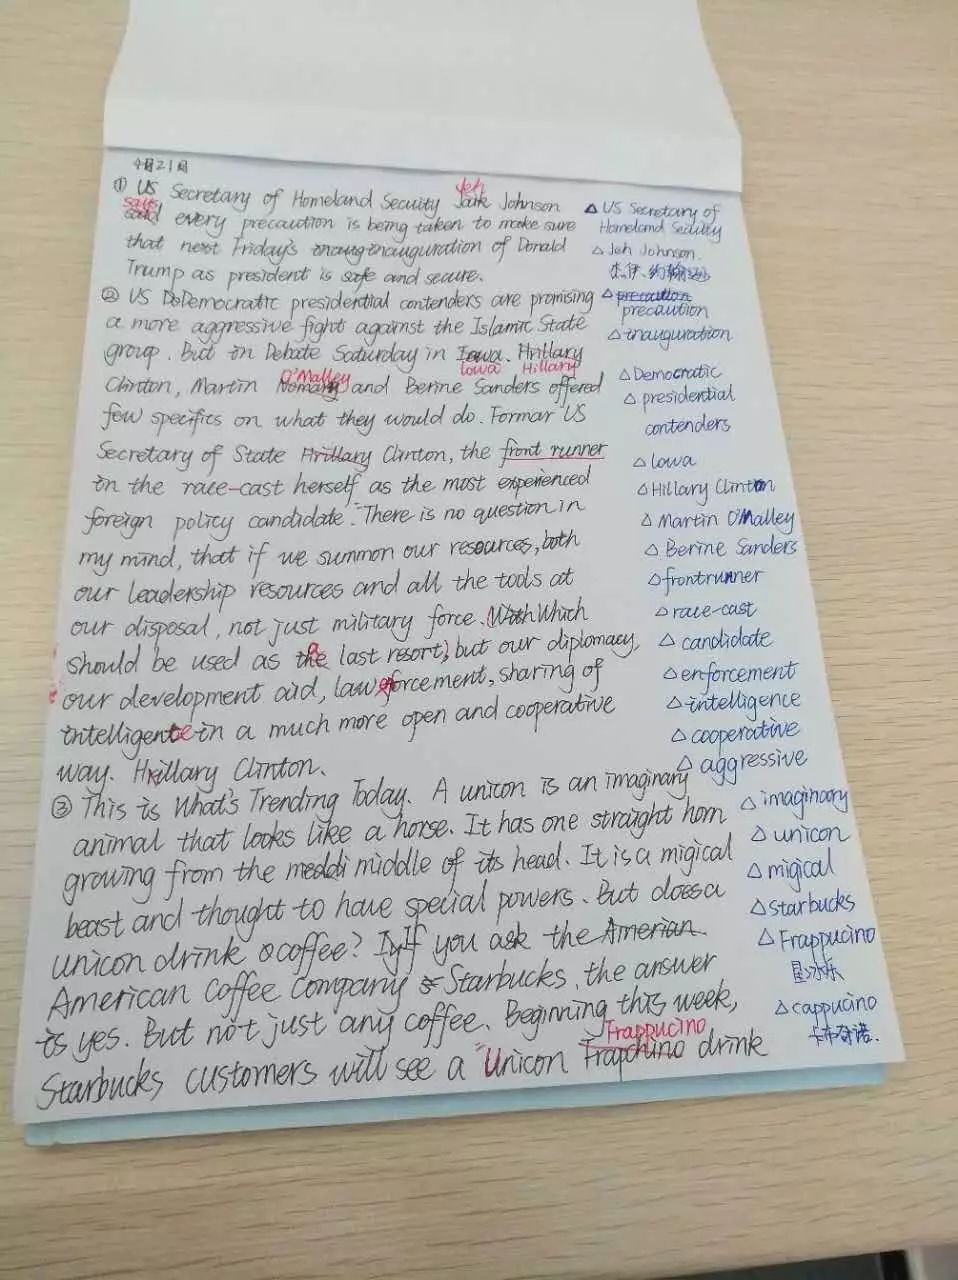 4月21日
① US Secretary of Homeland Security Jeh Johnson
says every precaution is being taken to make sure
that next Friday's inauguration of Donald
Trump as president is safe and secure.
② US DoDemocratic presidential contenders are promising
a more aggressive fight against the Islamic State
group. But in Debate Saturday in Iowa. Hrillary
Iowa Hillary
Clinton, Martin O'Malley and Berine Sanders offered
few specifics on what they would do. Formar US
Secretary of State Hrillary Clinton, the front runner
in the race-cast herself as the most experienced
foreign policy candidate. "There is no question in
my mind, that if we summon our resources, both
our leadership resources and all the tools at
our disposal, not just military force. Which
should be used as a last resort, but our diplomacy,
our development aid, law enforcement, sharing of
intelligence in a much more open and cooperative
way. Hillary Clinton.
③ This is What's Trending Today. A unicon is an imaginary
animal that looks like a horse. It has one straight horn
growing from the meddi middle of its head. It is a migical
beast and thought to have special powers. But does a
unicon drink coffee? If you ask the Amerian
American Coffee Company Starbucks, the answer
is yes. But not just any coffee. Beginning this week,
Frappucino
Starbucks customers will see a "Unicon Frapchino drink
△ US Secretary of
Homeland Security
△ Jeh Johnson.
杰伊·约翰逊
△ precaution
precaution
△ inauguration
△ Democratic
△ presidential
contenders
△ Iowa
△ Hillary Clinton
△ Martin O'Malley
△ Berine Sanders
△ frontrunner
△ race-cast
△ candidate
△ enforcement
△ intelligence
△ cooperative
△ aggressive
△ imaginary
△ unicon
△ migical
△ starbucks
△ Frappucino
星冰乐
△ cappucino
卡布奇诺.